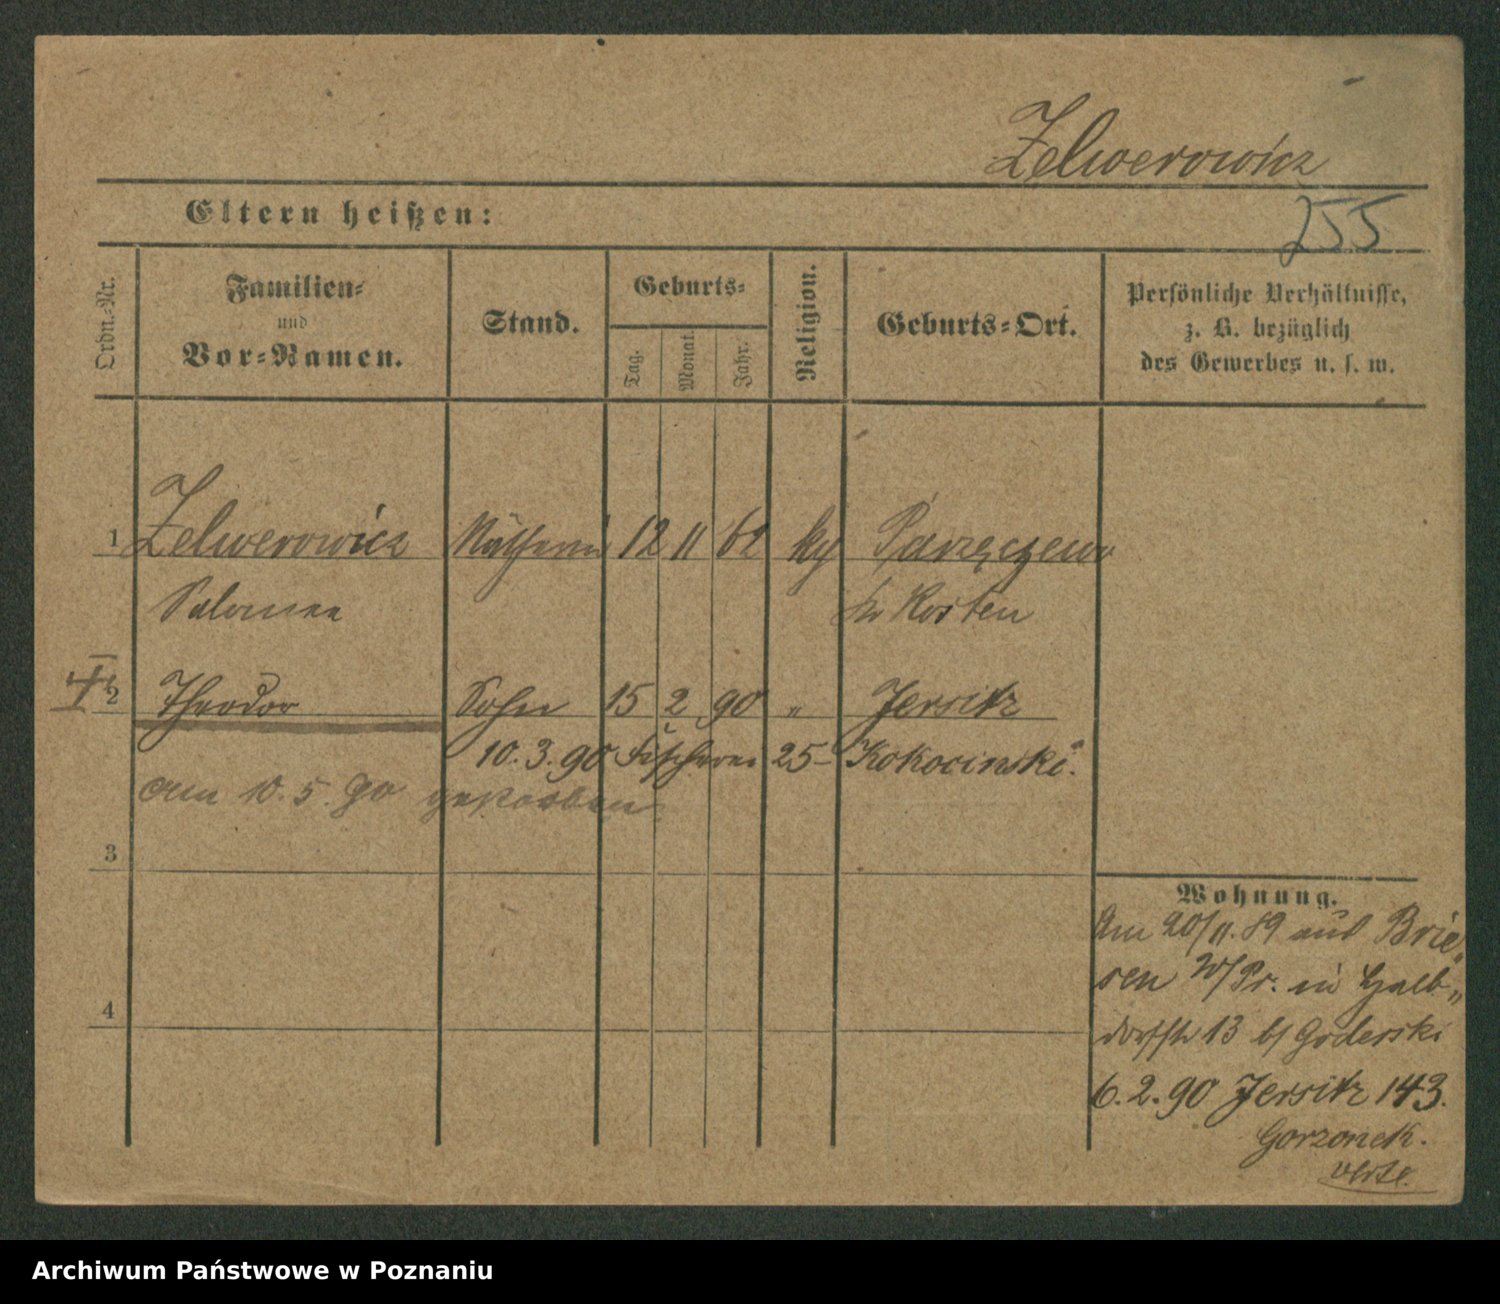 Zelwerowicz
Eltern heißen:
255
Ordn.-Nr.
Familien-
und
Vor-Namen.
Stand.
Geburts-
Tag.
Monat.
Jahr.
Religion.
Geburts-Ort.
Persönliche Verhältnisse,
z. B. bezüglich
des Gewerbes u. s. w.
1 Zelwerowicz Nätherin 12 11 62 kg Parzęczewo
Salomea Kosten
2 Theodor Sohn 15 2 90 " Jersitz
10.3.90 Fischerei 25- Kokocinski.
am 10.5.90 gestorben
3
4
Wohnung.
Am 20/11.89 aus Brie-
sen W/Pr. in Halb-
dorfstr 13 b/ Goderski
6.2.90 Jersitz 143.
Gorzonek.
verte.
Archiwum Państwowe w Poznaniu